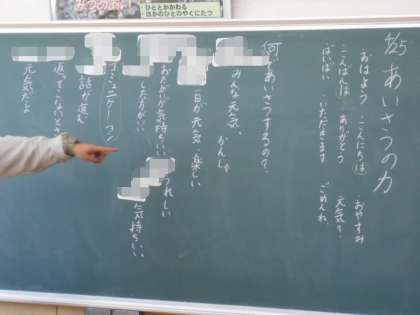 ひととかかわる
ほかのひとのやくにたつ
4/25 あいさつの力
おはよう こんにちは おやすみ
こんばんは ありがとう 元気？
ばいばい いただきます ごめんね
何であいさつするの？
みんな元気、かんしゃ
一日が元気、楽しい
うれしい
おたがいが気持ちいい
した方がいい
気持ちいい
コミュニケーション
話が進む
返ってこないとき
元気だよ